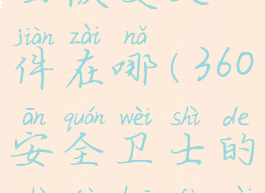 jiàn zài nǎ
件在哪(360
ān quán wèi shì de
安全卫士的